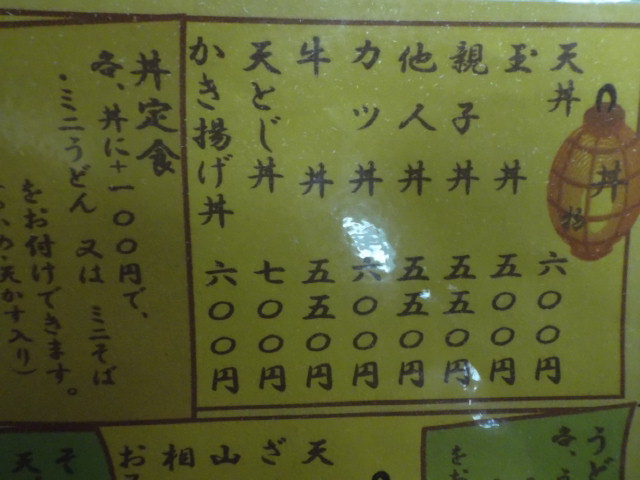 丼物
天丼 六〇〇円
玉丼 五〇〇円
親子丼 五五〇円
他人丼 五五〇円
カツ丼 六〇〇円
牛丼 五五〇円
天とじ丼 七〇〇円
かき揚げ丼 六〇〇円
丼定食
各、丼に+一〇〇円で、
・ミニうどん 又は ミニそば
をお付けできます。
天かす入り)
うど
各、う
をお
天
ざ
山
相
お
そ
天